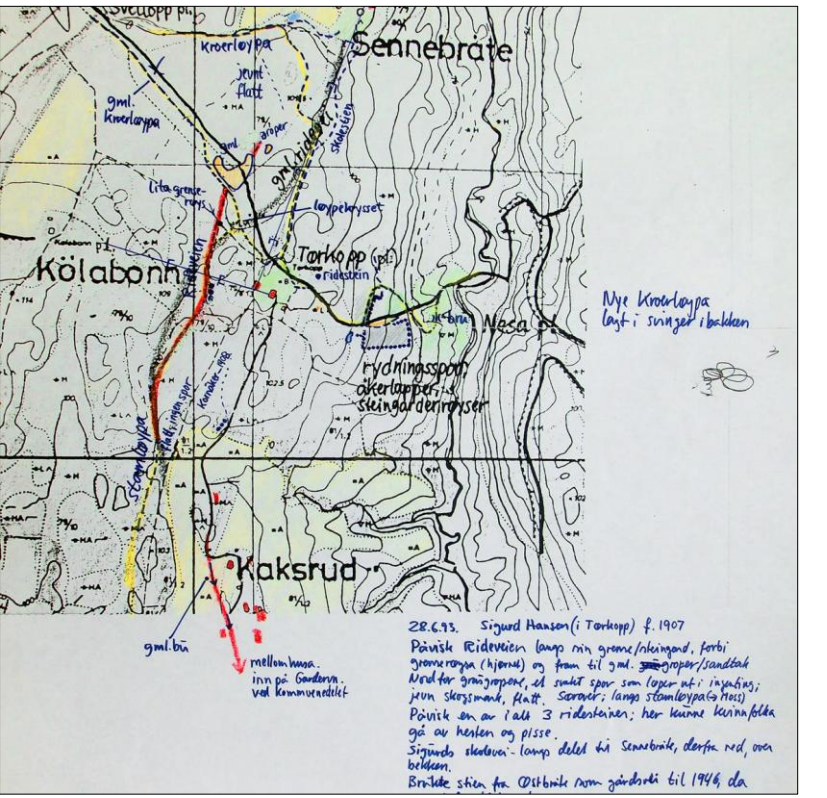 Svetlopp pl.
Kroerløypa
Sennebråte
jevnt
flatt
gml.
Kroerløypa
gml
groper
gml ridevei
skolestien
lita grense-
røys
løypekrysset
Kølabonn pl.
Rideveien
Tørkopp (pl.)
Tørkopp
ridestein
Kölabonn
bru
Nesa pl.
Nye Kroerløypa
lagt i svinger i bakken
rydningsspor,
åkerlapper,
steingarder, røyser
Stamløypa
flatt, ingen spor
Kaksrud
gml. bu
mellom husa.
inn på Garderv.
ved kommunedelet
28.6.93. Sigurd Hansen (i Tørkopp) f. 1907
Påvisk Rideveien langs sin grense/steingard, forbi
grenserøysa (hjørnet) og fram til gml. groper/sandtak
Nord for grusgropene, et svakt spor som løper ut i ingenting;
jevn skogsmark, flatt. Sørover; langs stamløypa (→ Moss)
Påvisk en av i alt 3 ridesteiner; her kunne kvinnfolka
gå av hesten og pisse.
Sigurds skolevei - langs delet til Sennebråte, derfra ned, over
bekken.
Brukte stien fra Østbråte som gårdsvei til 1946, da